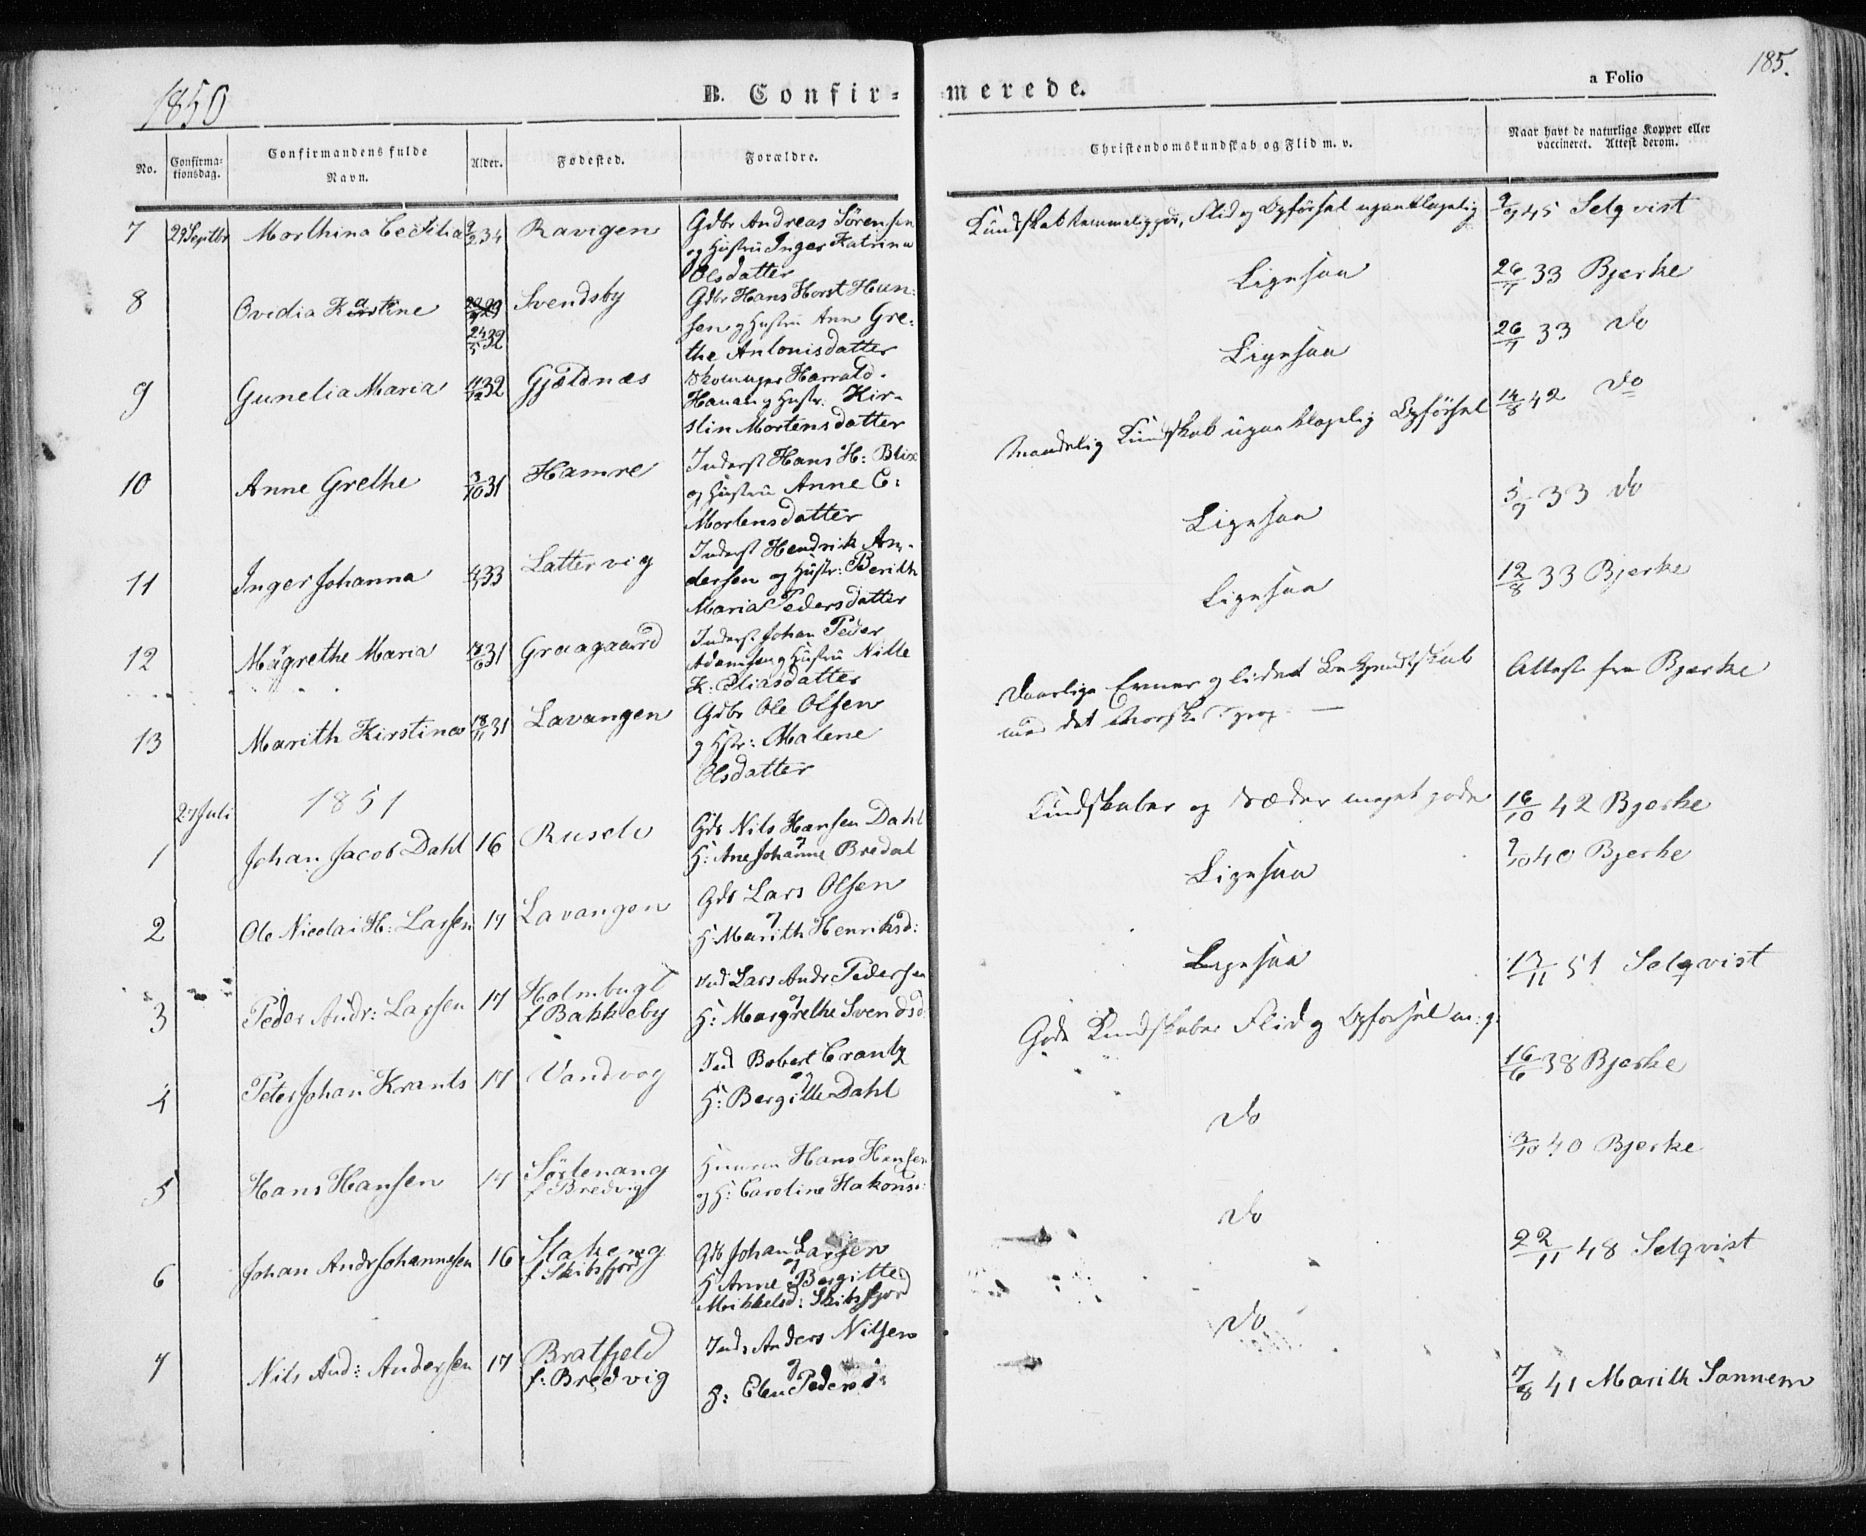 1850
B. Confir-
merede.
a Folio
185.
No.
Confirma-
tionsdag.
Confirmandens fulde
Navn.
Alder.
Fødested.
Forældre.
Christendomskundskab og Flid m. v.
Naar havt de naturlige Kopper eller
vaccineret. Attest derom.
7 29 Septbr Morthina Cecilia 34 Ravigen Gdbr Andreas Sørensen
og Hustru Inger Katrina
Olsdatter
Kundskab temmelig god, Flid og Opførsel upaaklagelig 45 Selqvist
8 Ovidia Kastine 24/5 32 Svendsby Gdbr Hans Horst Han:
sen og Hustru Ann Gre:
the Antonisdatter
Ligesaa 26/7 33 Bjerke
9 Gunelia Maria 32 Gjøvdnæs Harrald
Hanan og Hustr: Kir-
stin Mortensdatter
Ligesaa 26/7 33 do
10 Anne Grethe 3/10 31 Hamre Inderst Hans H: Blix
og Hustru Anne C:
Mortensdatter
Maadelig Kundskab upaaklagelig Opførsel 14/8 42 do
11 Inger Johanna 33 Lattervig Inderst Hendrik An-
dersen og Hustr: Berith
Maria Pedersdatter
Ligesaa 5/9 33 do
12 Magrethe Maria 31 Graagaard Inderst Johan Peder
Adamsen og Hustru Nille
K: Eliasdatter
Ligesaa 12/8 33 Bjerke
13 Marith Kirstine 18/11 31 Lavangen Gdbr Ole Olsen
og Hstr: Malene
Olsdatter
Daarlige Evner og lidet Bekjendtskab
med det Norske Sprog. —
Attest fra Bjerke
27 Juli 1851
1 Johan Jacob Dahl 16 Rusele Gdb Nils Hansen Dahl
H: Ane Johanne Bredal
Kundskaber og Sæder meget gode 16/10 42 Bjerke
2 Ole Nicolai H: Larsen 17 Lavangen Gdb Lars Olsen
og
H: Marith Henriksd:
Ligesaa 9/10 40 Bjerke
3 Peder Andr: Larsen 17 Holmbugt
f Bakkeby
Ind Lars Andr Pedersen
og
H: Margrethe Svendsd
Ligesaa 17/11 51 Selqvist
4 Peter Johan Krants 17 Vandvog Ind Robert Crantz
og
H: Bergitte Dahl
Gode Kundskaber Flid og Opførsel m: g: 16/6 38 Bjerke
5 Hans Hansen 17 Sørlenang
f Bredvig
Hans Hansen
og H: Caroline Hakons:
Do 3/10 40 Bjerke
6 Johan Andr Johannesen 16 Stakeng
f Skibsfjord
Gdb Johan Larsen
og
H Anne Bergitte
Mikkelsd: Skibsfjord
Do 22/11 48 Selqvist
7 Nils And: Andersen 17 Bratfjeld
f: Bredvig
Ind: Anders Nilsen
og
H: Elen Pedersd:
Do 7/8 41 Marith Sannem